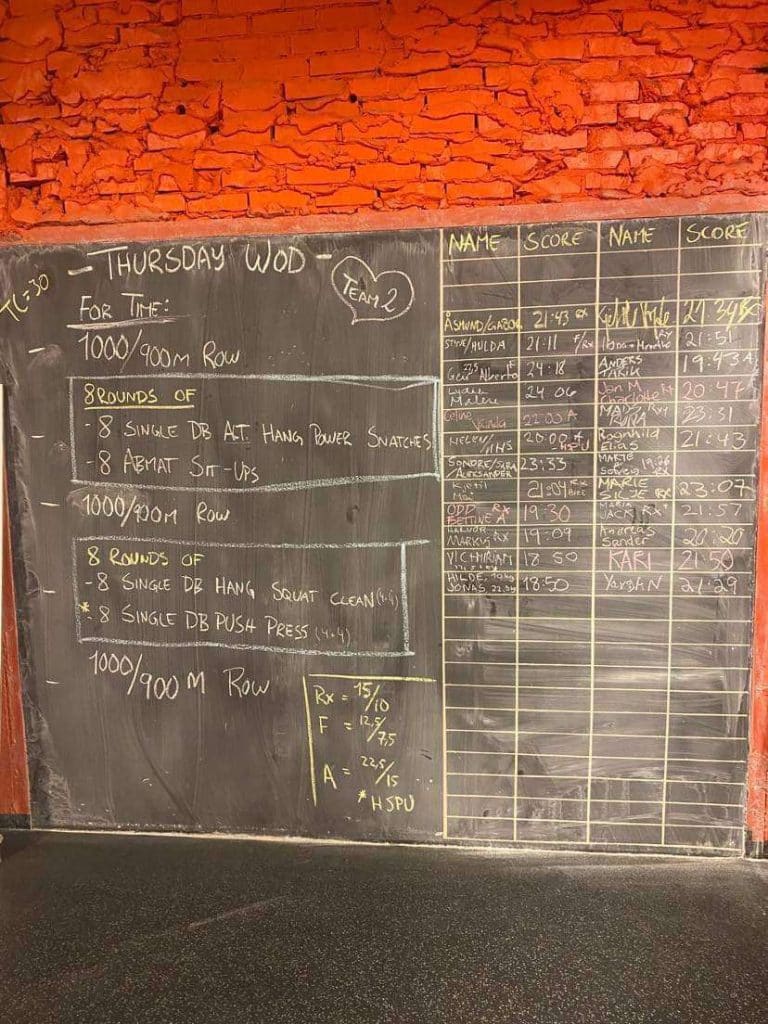 - THURSDAY WOD -
TC=30
TEAM 2
FOR TIME:
- 1000/900M ROW
8 ROUNDS OF
- 8 SINGLE DB ALT. HANG POWER SNATCHES
- 8 ABMAT SIT-UPS
- 1000/900M ROW
8 ROUNDS OF
- 8 SINGLE DB HANG SQUAT CLEAN (4+4)
*- 8 SINGLE DB PUSH PRESS (4+4)
- 1000/900 M ROW
RX = 15/10
F = 12,5/7,5
A = 22,5/15
*HSPU
NAME SCORE NAME SCORE
ÅSMUND/GABOR 21:43 RX 21:34
/HULDA 21:11 F/RX 21:51
Alberto 24:18 ANDERS TARIK 19:43 A
Malene 24 06 Jon M Charlotte 20:47
Celine 22:00 A 23:31
HELEN 20:00 A -HSPU Ragnhild Elias 21:43
SONDRE/SARA/ALEKSANDER 23:33 MARTE
Kjetil Mai 21:04 RX MARIE SILJE RX 23:07
ODD RX BETTINE A 19:30 21:57
MARKUS RX 19:09 Andreas Sander 20:20
18 50 KARI 21:50
HILDE JONAS 18:50 21:29